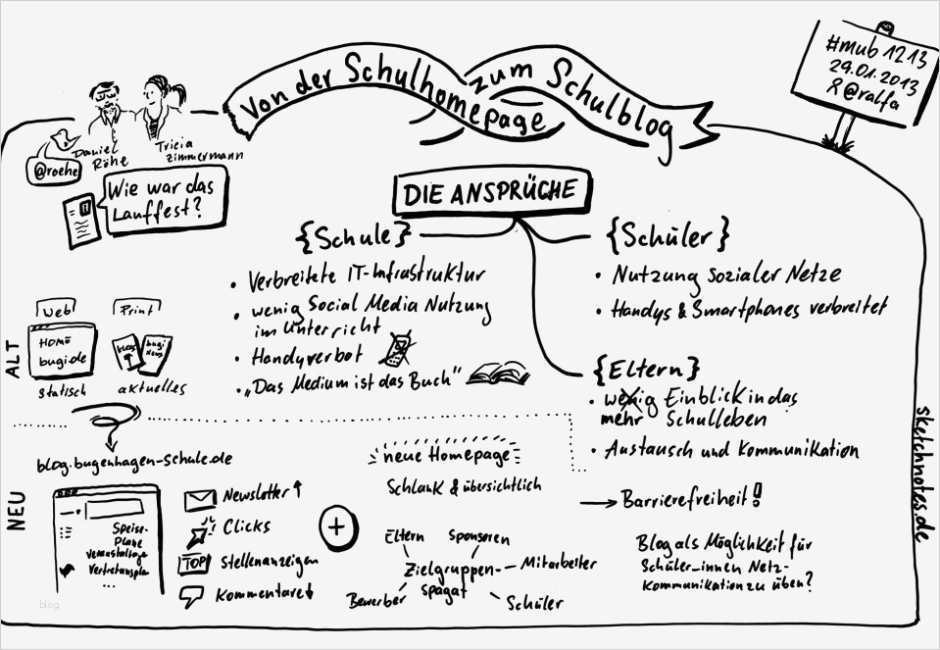 Von der Schulhomepage zum Schulblog
#mub1213
29.01.2013
@ralfa
Daniel Röhe
Tricia Zimmermann
@roehe
Wie war das
Lauffest?
DIE ANSPRÜCHE
{Schule}
• Verbreitete IT-Infrastruktur
• wenig Social Media Nutzung
im Unterricht
• Handyverbot
• „Das Medium ist das Buch"
{Schüler}
• Nutzung sozialer Netze
• Handys & Smartphones verbreitet
{Eltern}
• wenig Einblick in das
mehr Schulleben
• Austausch und Kommunikation
→ Barrierefreiheit!
Blog als Möglichkeit für
Schüler_innen Netz-
Kommunikation zu üben?
ALT
Web
HOME
bugi.de
statisch
Print
bugi
news
aktuelles
blog.bugenhagen-schule.de
NEU
Speise-
Pläne
Veranstaltunge
Vertretungsplan
...
Newsletter ↑
Clicks
TOP! Stellenanzeigen
Kommentare ↓
+
neue Homepage
Schlank & übersichtlich
Eltern
Sponsoren
Mitarbeiter
Zielgruppen-
spagat
Bewerber
Schüler
sketchnotes.de
blog